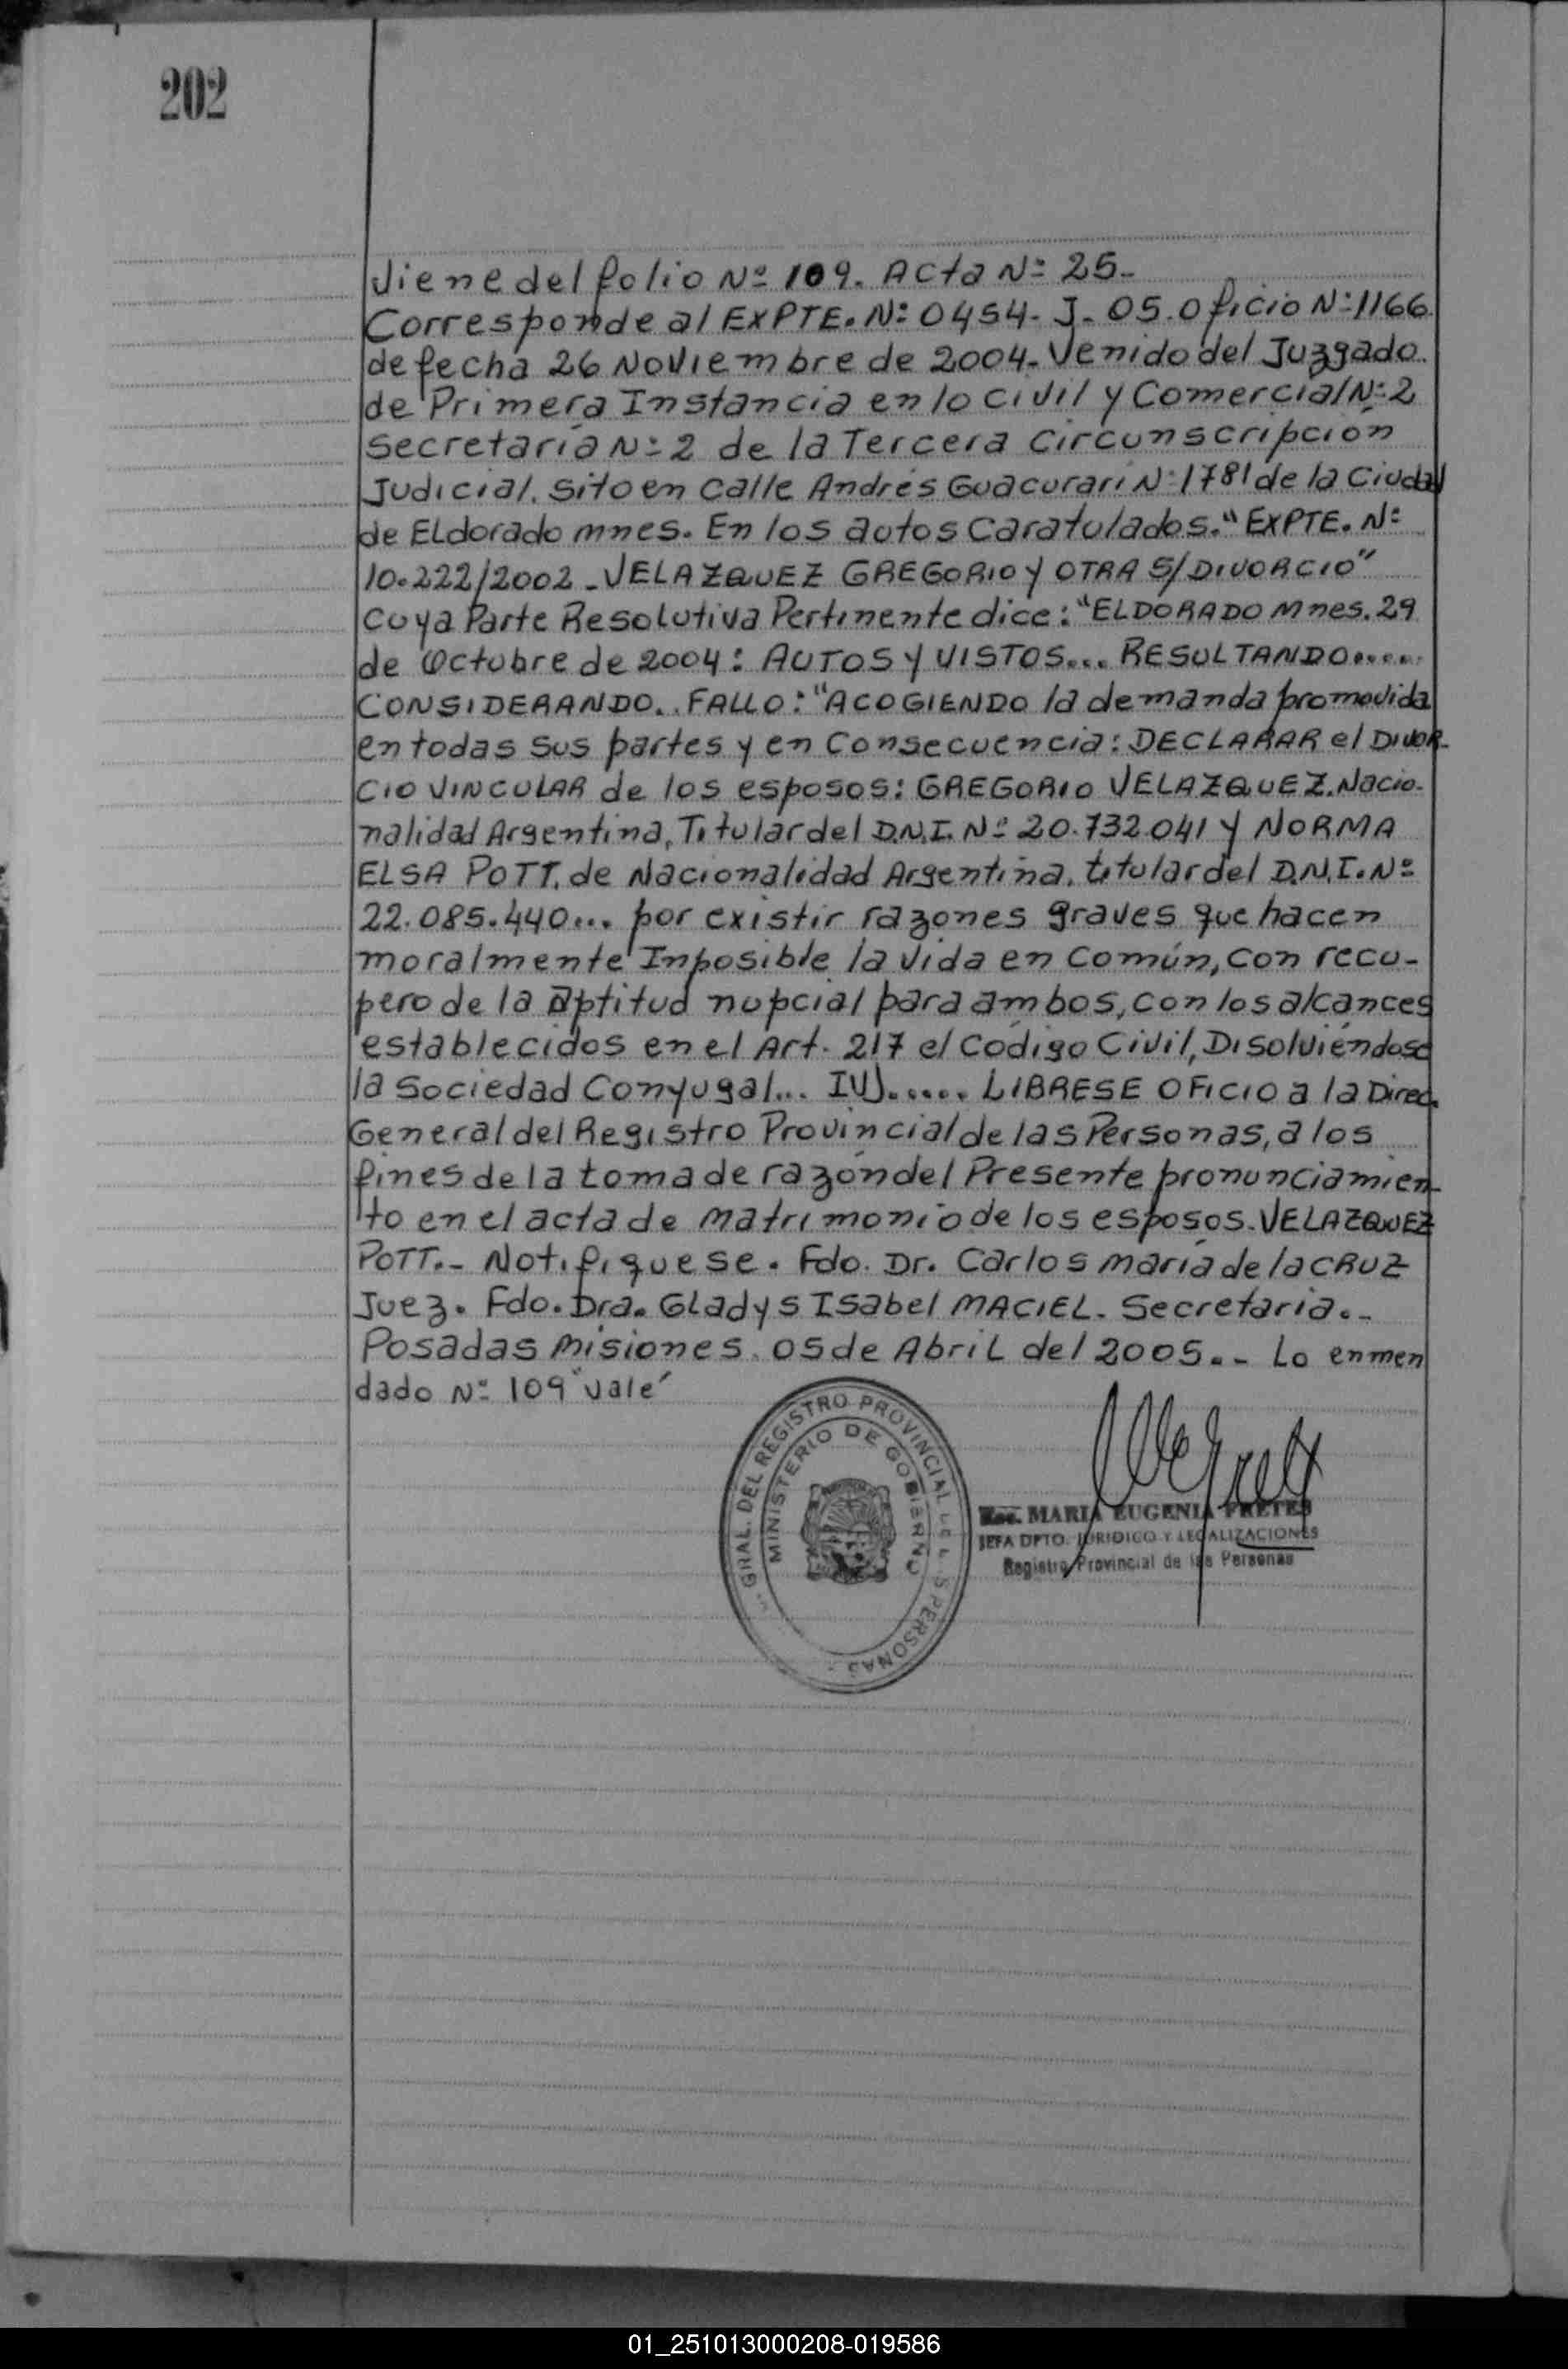 202
Viene del folio Nº 109. Acta Nº 25.-
Corresponde al EXPTE. Nº 0454- J- 05. Oficio Nº 1166
de fecha 26 Noviembre de 2004- Venido del Juzgado
de Primera Instancia en lo Civil y Comercial Nº 2
Secretaría Nº 2 de la Tercera Circunscripción
Judicial, sito en calle Andrés Guacurarí Nº 1781 de la Ciudad
de Eldorado mnes. En los autos Caratulados." EXPTE. Nº
10.222/2002 - VELAZQUEZ GREGORIO y OTRA S/DIVORCIO"
Cuya Parte Resolutiva Pertinente dice: "ELDORADO Mnes. 29
de Octubre de 2004: AUTOS y VISTOS... RESULTANDO.....
CONSIDERANDO.. FALLO: "ACOGIENDO la demanda promovida
en todas sus partes y en Consecuencia: DECLARAR el DIVOR-
CIO VINCULAR de los esposos: GREGORIO VELAZQUEZ. Nacio-
nalidad Argentina, Titular del D.N.I. Nº 20.732.041 y NORMA
ELSA POTT, de Nacionalidad Argentina, titular del D.N.I. Nº
22.085.440... por existir razones graves que hacen
moralmente Inposible la vida en Común, con recu-
pero de la aptitud nupcial para ambos, con los alcances
establecidos en el Art. 217 el Código Civil, Disolviéndose
la Sociedad Conyugal... IV)...... LIBRESE OFICIO a la Direc.
General del Registro Provincial de las Personas, a los
fines de la toma de razón del Presente pronunciamien-
to en el acta de matrimonio de los esposos. VELAZQUEZ
POTT.- Notifiquese. Fdo. Dr. Carlos maría de la CRUZ
Juez. Fdo. Dra. Gladys Isabel MACIEL. Secretaria.-
Posadas misiones. 05 de Abril del 2005.- Lo enmen
dado Nº 109 "vale"
GRAL. DEL REGISTRO PROVINCIAL DE LAS PERSONAS
MINISTERIO DE GOBIERNO
Esc. MARIA EUGENIA FRETES
JEFA DPTO. JURIDICO Y LEGALIZACIONES
Registro Provincial de las Personas
01_251013000208-019586